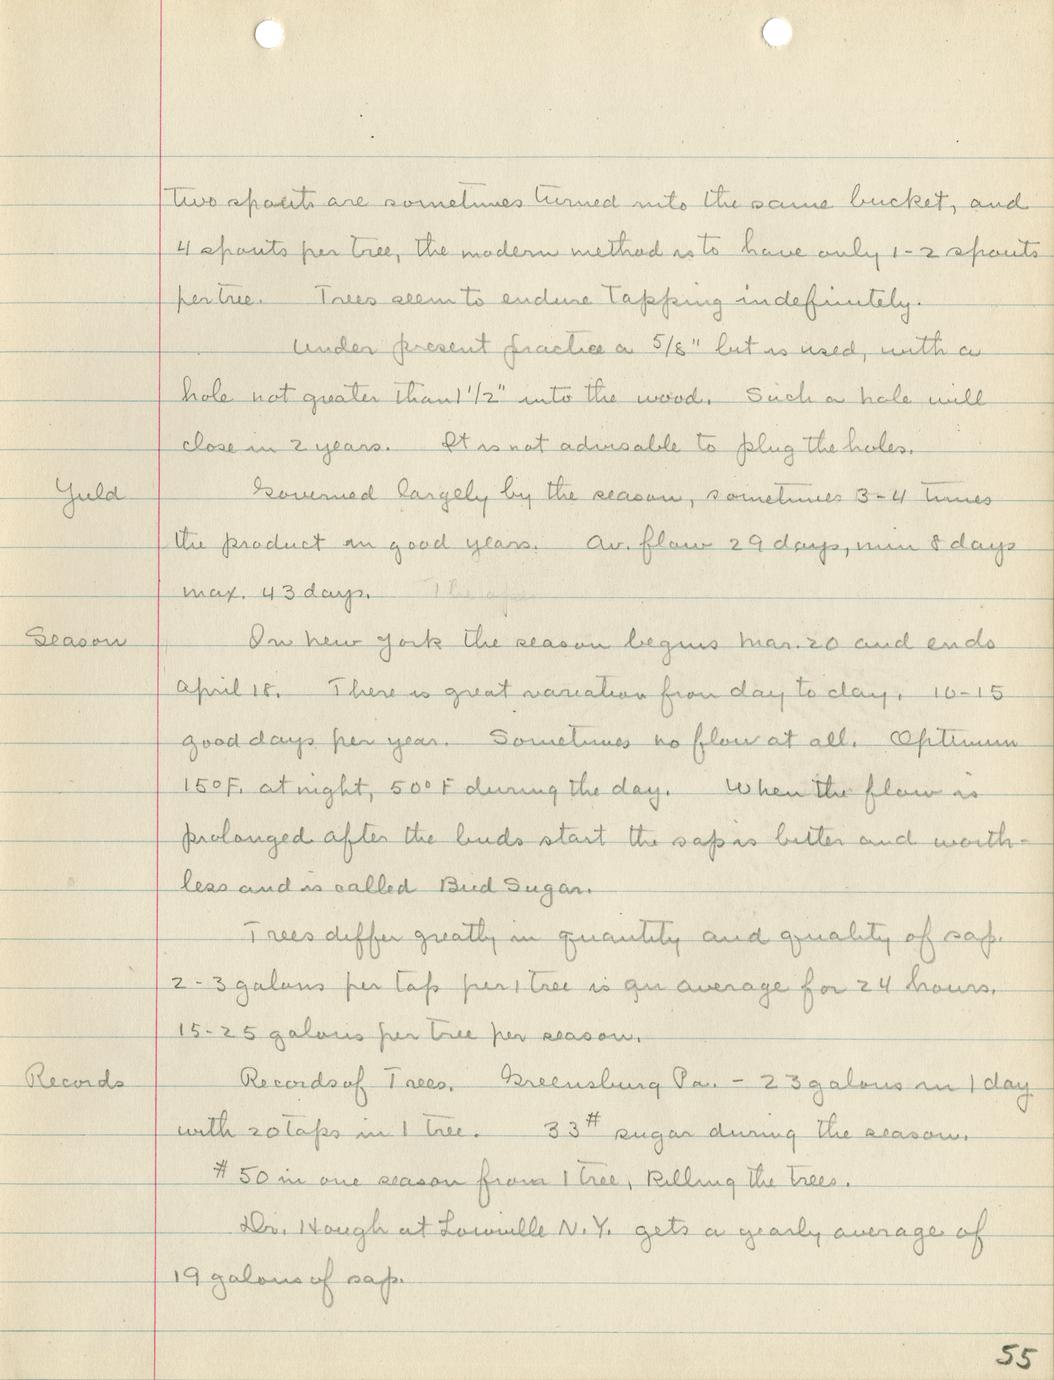 two spouts are sometimes turned into the same bucket, and
4 spouts per tree, the modern method is to have only 1-2 spouts
per tree. Trees seem to endure Tapping indefinitely.
Under present practice a 5/8" bit is used, with a
hole not greater than 1 1/2" into the wood. Such a hole will
close in 2 years. It is not advisable to plug the holes.
Yield Governed largely by the season, sometimes 3-4 times
the product in good years. Av. flow 29 days, min 8 days
max. 43 days.
Season In New York the season begins Mar. 20 and ends
April 18. There is great variation from day to day. 10-15
good days per year. Sometimes no flow at all. Optimum
15°F. at night, 50°F during the day. When the flow is
prolonged after the buds start the sap is bitter and worth-
less and is called Bud Sugar.
Trees differ greatly in quantity and quality of sap.
2-3 galons per tap per 1 tree is an average for 24 hours.
15-25 galons per tree per season.
Records Records of Trees. Greensburg Pa. - 23 galons in 1 day
with 20 taps in 1 tree. 33# sugar during the season.
#50 in one season from 1 tree, killing the trees.
Dr. Hough at Lowville N.Y. gets a yearly average of
19 galons of sap.
55